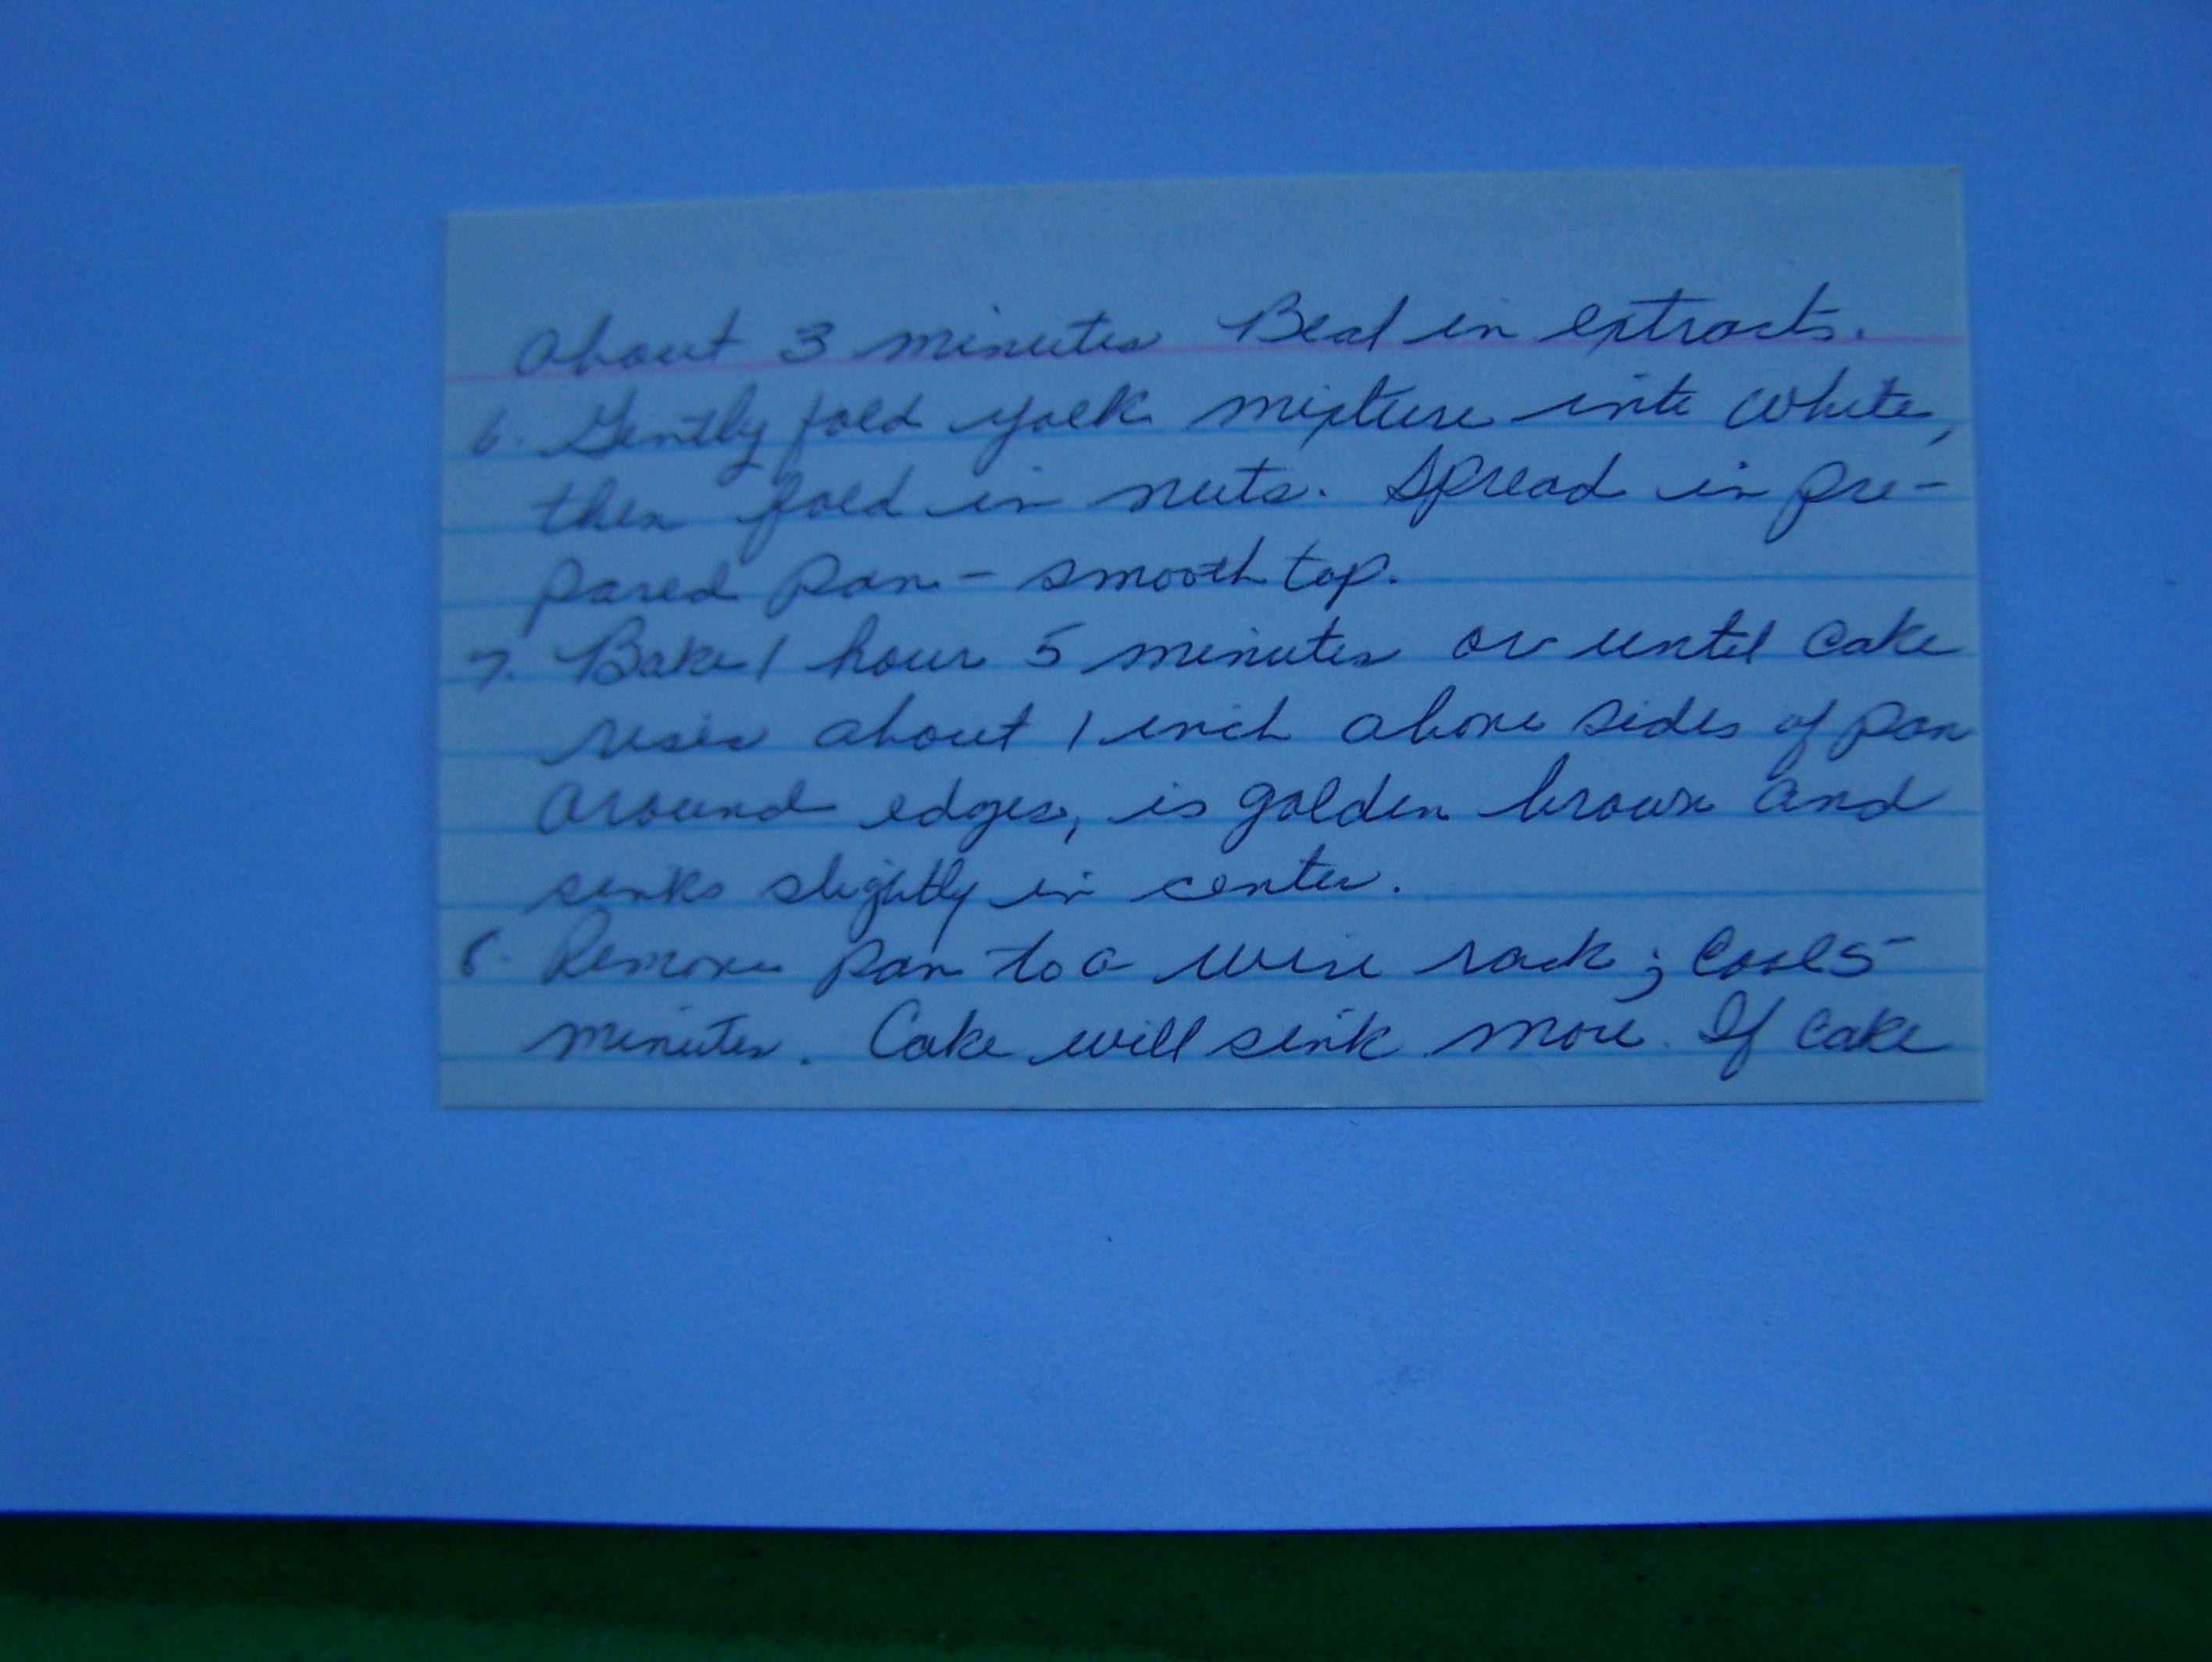 About 3 minutes Beat in extracts.
6. Gently fold yolk mixture into white,
then fold in nuts. Spread in pre-
pared pan - smooth top.
7. Bake 1 hour 5 minutes or until cake
rises about 1 inch above sides of pan
around edges, is golden brown and
sinks slightly in center.
8. Remove pan to a wire rack; cool 5
minutes. Cake will sink more. If cake